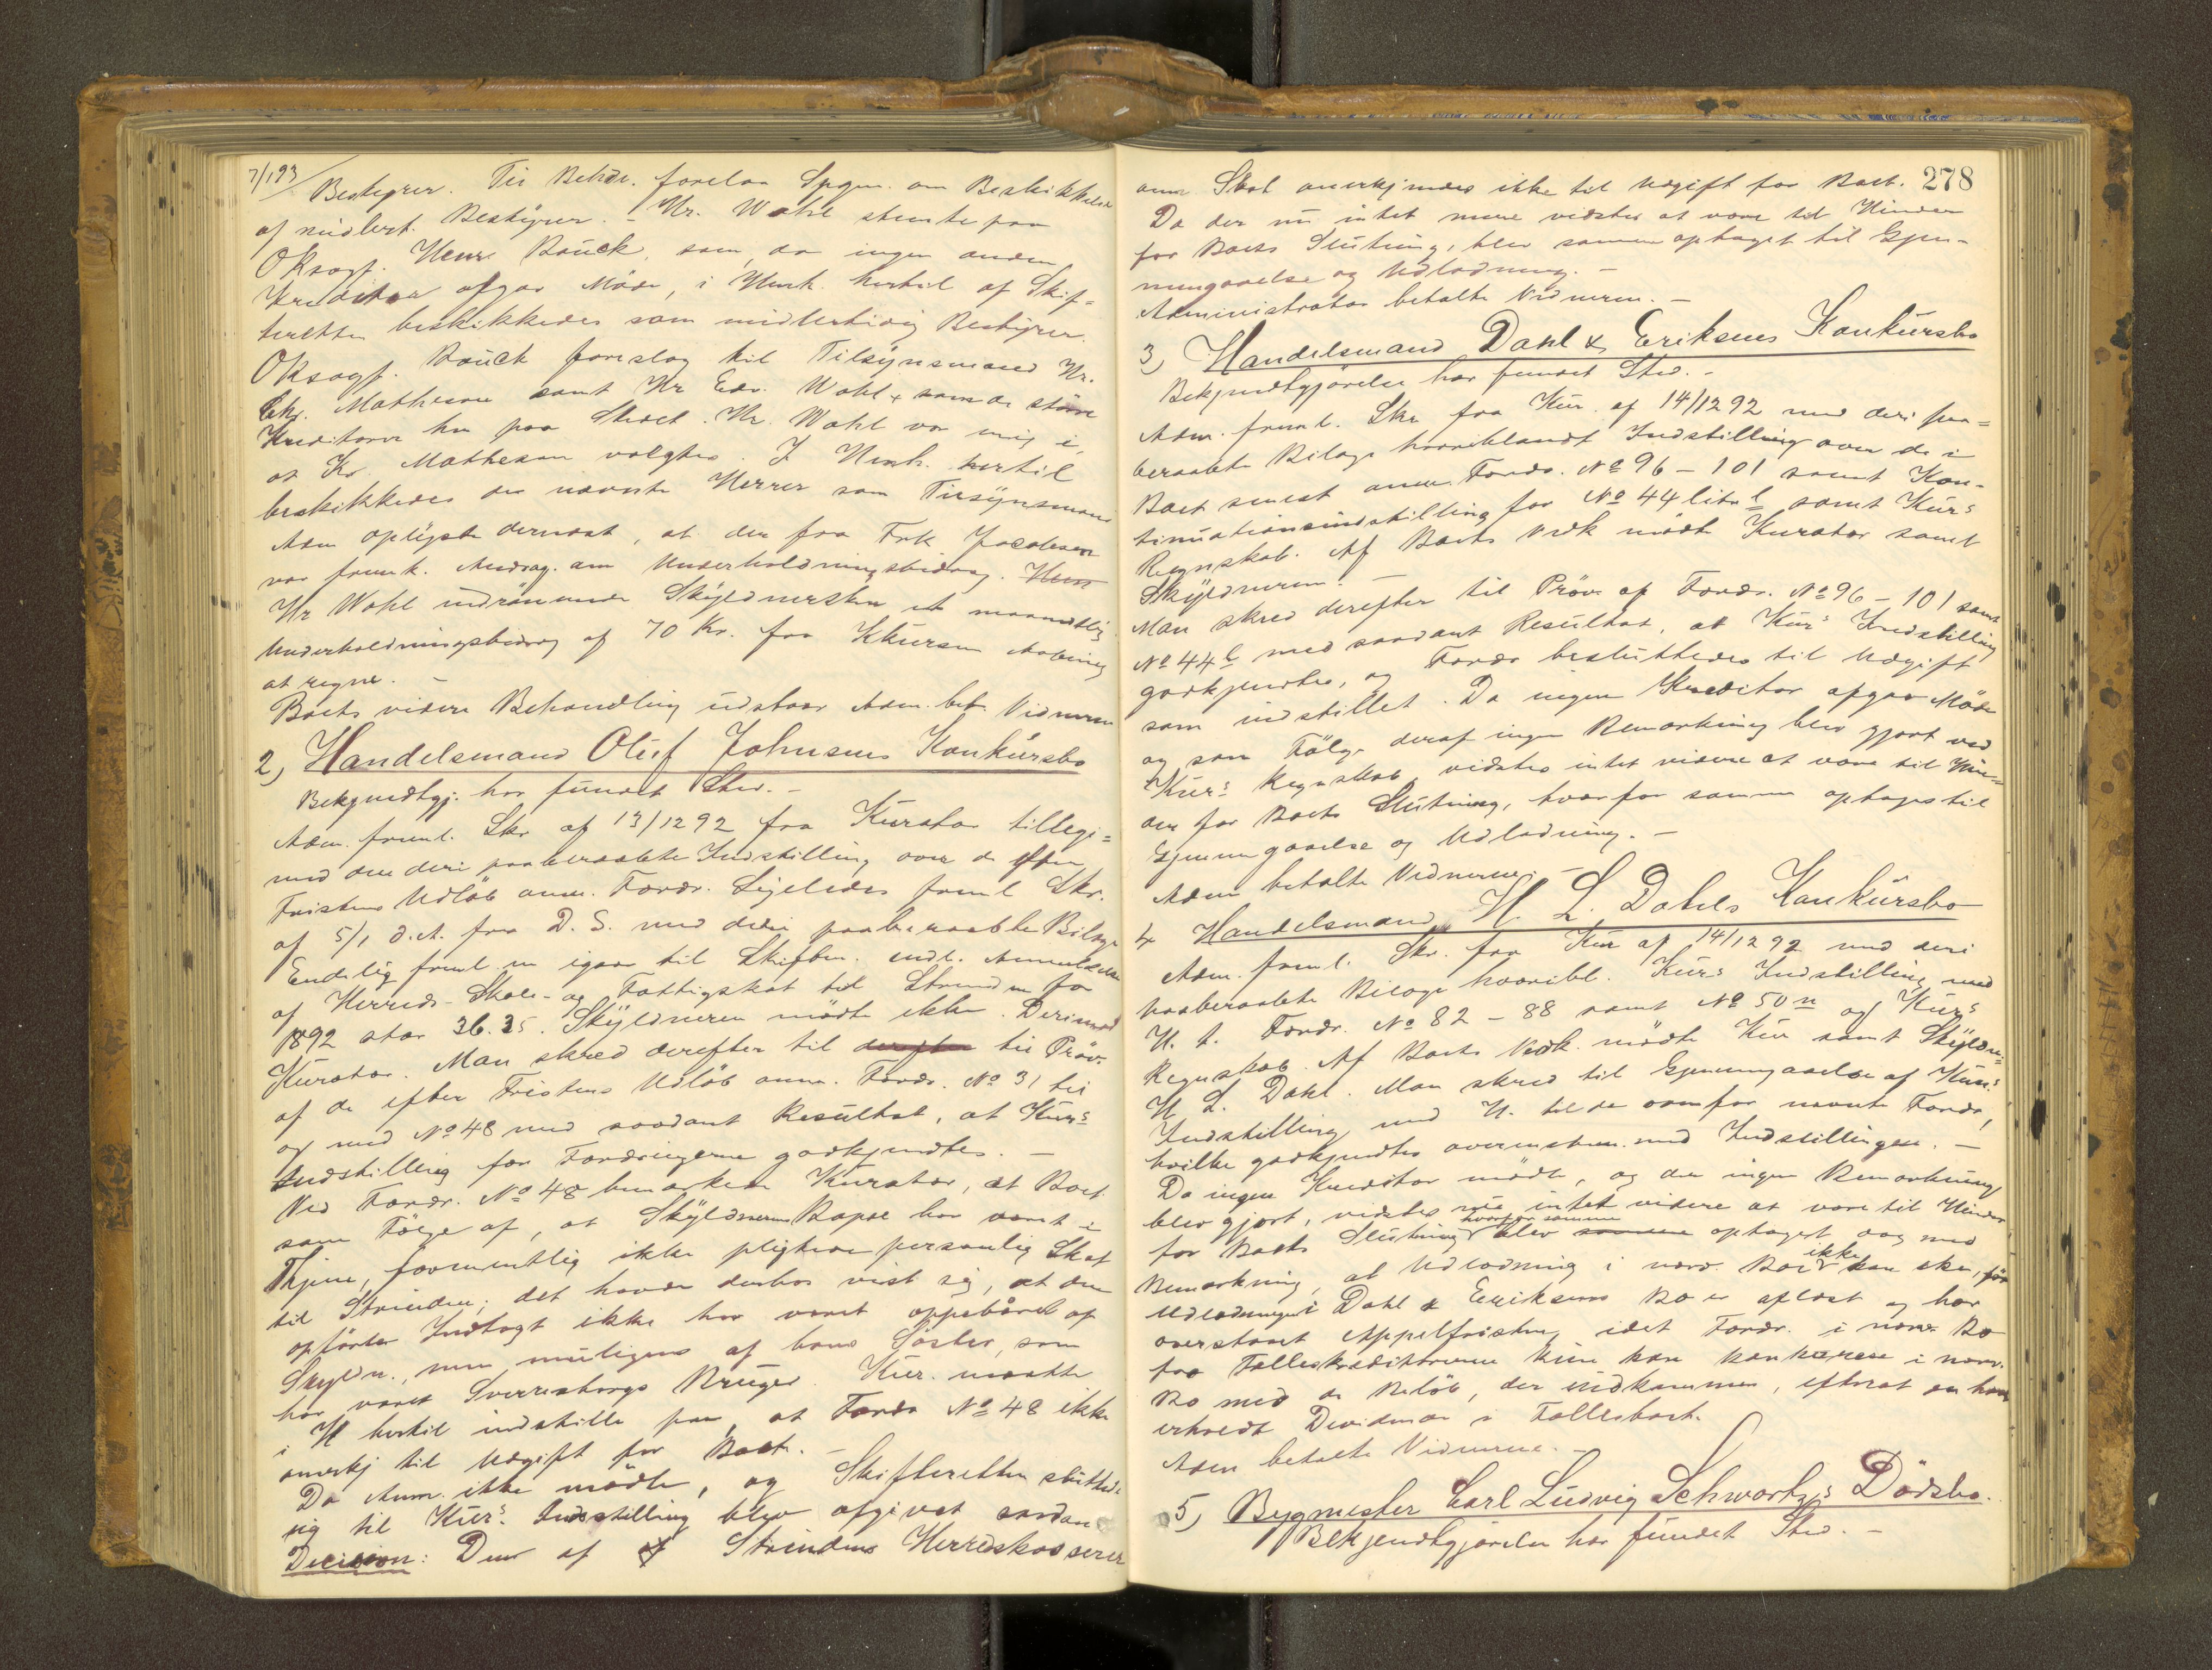 7/1 93
Bestyrer. Til Behdl. forelaa Spgm. om Beskikkelse
af midlert. Bestyrer. - Hr. Wahl stemte paa
OKsagf. Henr. Bauck, som, da ingen anden
Kreditor afgav Møde, i Henh. hertil af Skif-
teretten beskikkedes som midlertidig Bestyrer.
OKsagf. Bauck foreslog til Tilsynsmænd Hr.
Chr. Mathesen samt Hr Edv. Wahl, som de større
Kreditorer her paa Stedet. Hr. Wahl var enig i,
at Hr. Mathesen valgtes. I Henh. hertil
beskikkedes de nævnte Herrer som Tilsynsmænd
Adm oplyste dernæst, at der fra Frk Jacobsen
var fremk. Andrag. om Underholdningsbidrag.
Hr Wahl indrømmede Skyldnersken et maanedlig
Underholdningsbidrag af 70 Kr. fra Kkursens Aabning
at regne. -
Boets videre Behandling udstaar Adm. bet. Vidnerne
2, Handelsmand Oluf Johnsens Konkursbo
Bekjendtgj. har fundet Sted. -
Adm. freml. Skr af 13/12 92 fra Kurator tillige-
med den deri paaberaabte Indstilling over de efter
Fristens Udløb anm. Fordr. Ligeledes freml Skr.
af 5/1 d.A. fra D. S. med deri paaberaabte Bilage
Endelig freml. en igaar til Skifterr. indl. Anmeldelse
af Herreds- Skole- og Fattigskat til Strinden for
1892 stor 36.35. Skyldneren mødte ikke. Derimod
Kurator. Man skred derefter til derefter til Prøv.
af de efter Fristens Udløb anm. Fordr. No 31 til
og med No 48 med saadant Resultat, at Kurs
Indstilling for Fordringerne godkjendtes. -
Ved Fordr. No 48 bemærkede Kurator, at Boet
som Følge af, at Skyldneren har været i
Thjem, formentlig ikke pligter personlig Skat
til Strinden; det havde derhos vist sig, at den
opførte Indtægt ikke har været oppebåret af
Skyldn., men muligens af hans Søster, som
har været Sverresborgs Bruger. Kur. maatte
i H hertil indstille paa, at Fordr No 48 ikke
anerkj til Udgift for Boet. -
Da Anm. ikke mødte, og Skifteretten sluttede
sig til Kurs Indstilling blev afgivet saadan
Decision: Den af Strindens Herredskasserer
278
anm Skat anerkjendes ikke til Udgift for Boet.
Da der nu intet mere vidstes at være til Hinder
for Boets Slutning, blev samme optaget til Gjen-
nemgaaelse og Udlodning. -
Administrator betalte Vidnerne. -
3, Handelsmand Dahl & Eriksens Konkursbo
Bekjendtgjørelse har fundet Sted. -
Adm. freml. Skr fra Kur. af 14/12 92 med deri paa-
beraabte Bilage hvoriblandt Indstilling over de i
Boet senest anm. Fordr. No 96 - 101 samt Kon-
tinuationsindstilling for No 44 litr l samt Kurs
Regnskab. Af Boets Vedk mødte Kurator samt
Skyldneren. -
Man skred derefter til Prøv. af Fordr. No 96 - 101 samt
No 44 l med saadant Resultat, at Kurs Indstilling
godkjendtes, og Fordr besluttedes til Udgift
som indstillet. Da ingen Kreditor afgav Møde
og som Følge deraf ingen Bemærkning blev gjort ved
Kurs Regnskab, vidstes intet videre at være til Hin-
der for Boets Slutning, hvorfor samme optages til
Gjennemgaaelse og Udlodning. -
Adm betalte Vidnerne. -
4 Handelsmand H. L. Dahls Konkursbo
Adm. freml. Skr. fra Kur af 14/12 92 med deri
paaberaabte Bilage hvoribl. Kurs Indstilling med
H. t. Fordr. No 82 - 88 samt No 50 n og Kurs
Regnskab. Af Boets Vedk. mødte Kur samt Skyldn.
H L. Dahl. Man skred til Gjennemgaaelse af Kurs
Indstilling med H. til de ovenfor nævnte Fordr,
hvilke godkjendtes overensstem. med Indstillingen. -
Da ingen Kreditor mødte, og der ingen Bemærkning
blev gjort, vidstes nu intet videre at være til Hinder
for Boets Slutning hvorfor samme blev samme optaget dog med
Bemærkning, at Udlodning i nærv. Bo ikke kan ske, før
Udlodningen i Dahl & Eriksens Bo er aflæst og har
overstaaet Appelfristen, idet Fordr. i nærv Bo
fra Felleskreditorerne kun kan konkurrere i nærv.
Bo med de Beløb, der udkommer, efterat de have
erholdt Dividende i Fellesboet.
Adm betalte Vidnerne. -
5, Bygmester Carl Ludvig Schwartz's Dødsbo.
Bekjendtgjørelse har fundet Sted. -